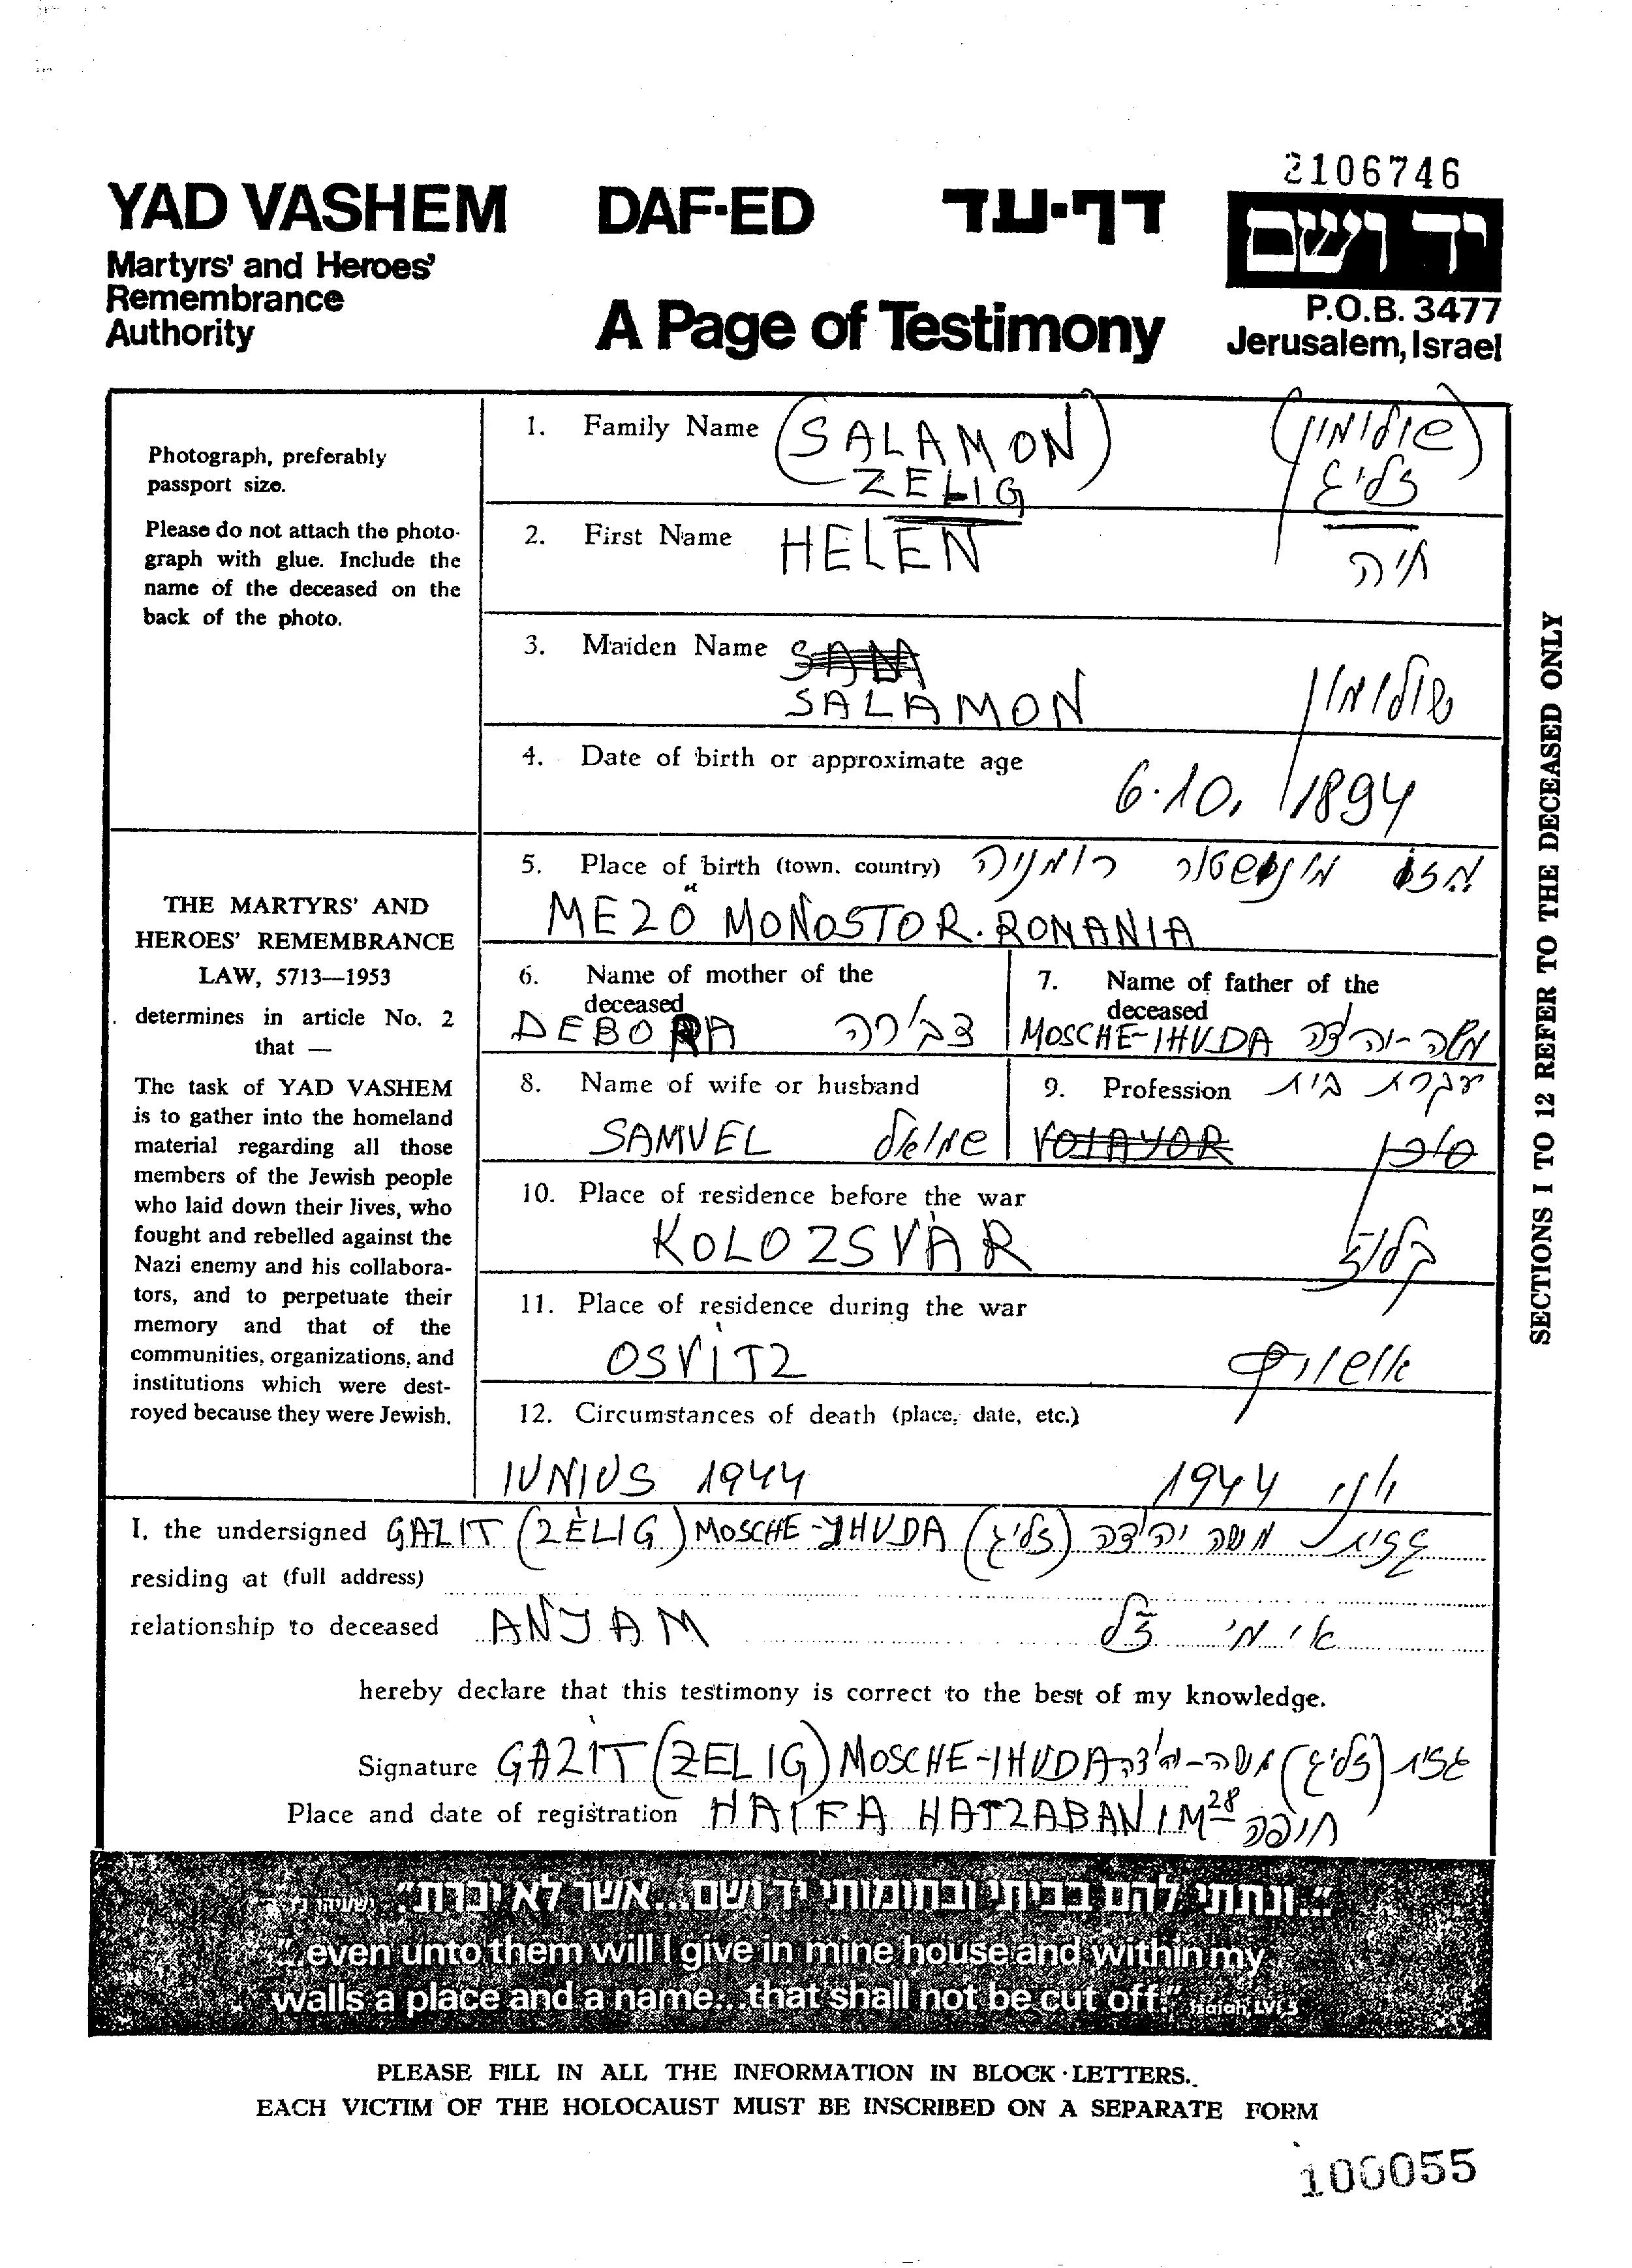 2106746
YAD VASHEM DAF-ED דף-עד יד ושם
Martyrs' and Heroes'
Remembrance
Authority
A Page of Testimony
P.O.B. 3477
Jerusalem, Israel
Photograph, preferably
passport size.
Please do not attach the photo-
graph with glue. Include the
name of the deceased on the
back of the photo.
THE MARTYRS' AND
HEROES' REMEMBRANCE
LAW, 5713—1953
determines in article No. 2
that —
The task of YAD VASHEM
is to gather into the homeland
material regarding all those
members of the Jewish people
who laid down their lives, who
fought and rebelled against the
Nazi enemy and his collabora-
tors, and to perpetuate their
memory and that of the
communities, organizations, and
institutions which were dest-
royed because they were Jewish.
1. Family Name (SALAMON) (שולומון)
ZELIG זליג
2. First Name HELEN חיה
3. Maiden Name
SALAMON שולומון
4. Date of birth or approximate age
6.10. 1894
5. Place of birth (town, country) מזו מונושטור רומניה
MEZŐ MONOSTOR. ROMANIA
6. Name of mother of the
deceased
DEBORA דבורה
7. Name of father of the
deceased
MOSCHE-IHUDA משה-יהודה
8. Name of wife or husband
SAMUEL שמואל
9. Profession עקרת בית
סוכן
10. Place of residence before the war
KOLOZSVÁR קלוז
11. Place of residence during the war
OSVITZ אושוויץ
12. Circumstances of death (place, date, etc.)
IUNIUS 1944 יוני 1944
I, the undersigned GAZIT (ZELIG) MOSCHE-JHUDA גזית משה יהודה (זליג)
residing at (full address)
relationship to deceased ANJAM אימי ז"ל
hereby declare that this testimony is correct to the best of my knowledge.
Signature GAZIT (ZELIG) MOSCHE-IHUDA גזית (זליג) משה-יהודה
Place and date of registration HAIFA HATZABANIM 28 חיפה
"ונתתי להם בביתי ובחומותי יד ושם...אשר לא יכרת" ישעיהו נו ה
"...even unto them will I give in mine house and within my
walls a place and a name...that shall not be cut off." Isaiah, LVI, 5
SECTIONS 1 TO 12 REFER TO THE DECEASED ONLY
PLEASE FILL IN ALL THE INFORMATION IN BLOCK LETTERS.
EACH VICTIM OF THE HOLOCAUST MUST BE INSCRIBED ON A SEPARATE FORM
100055